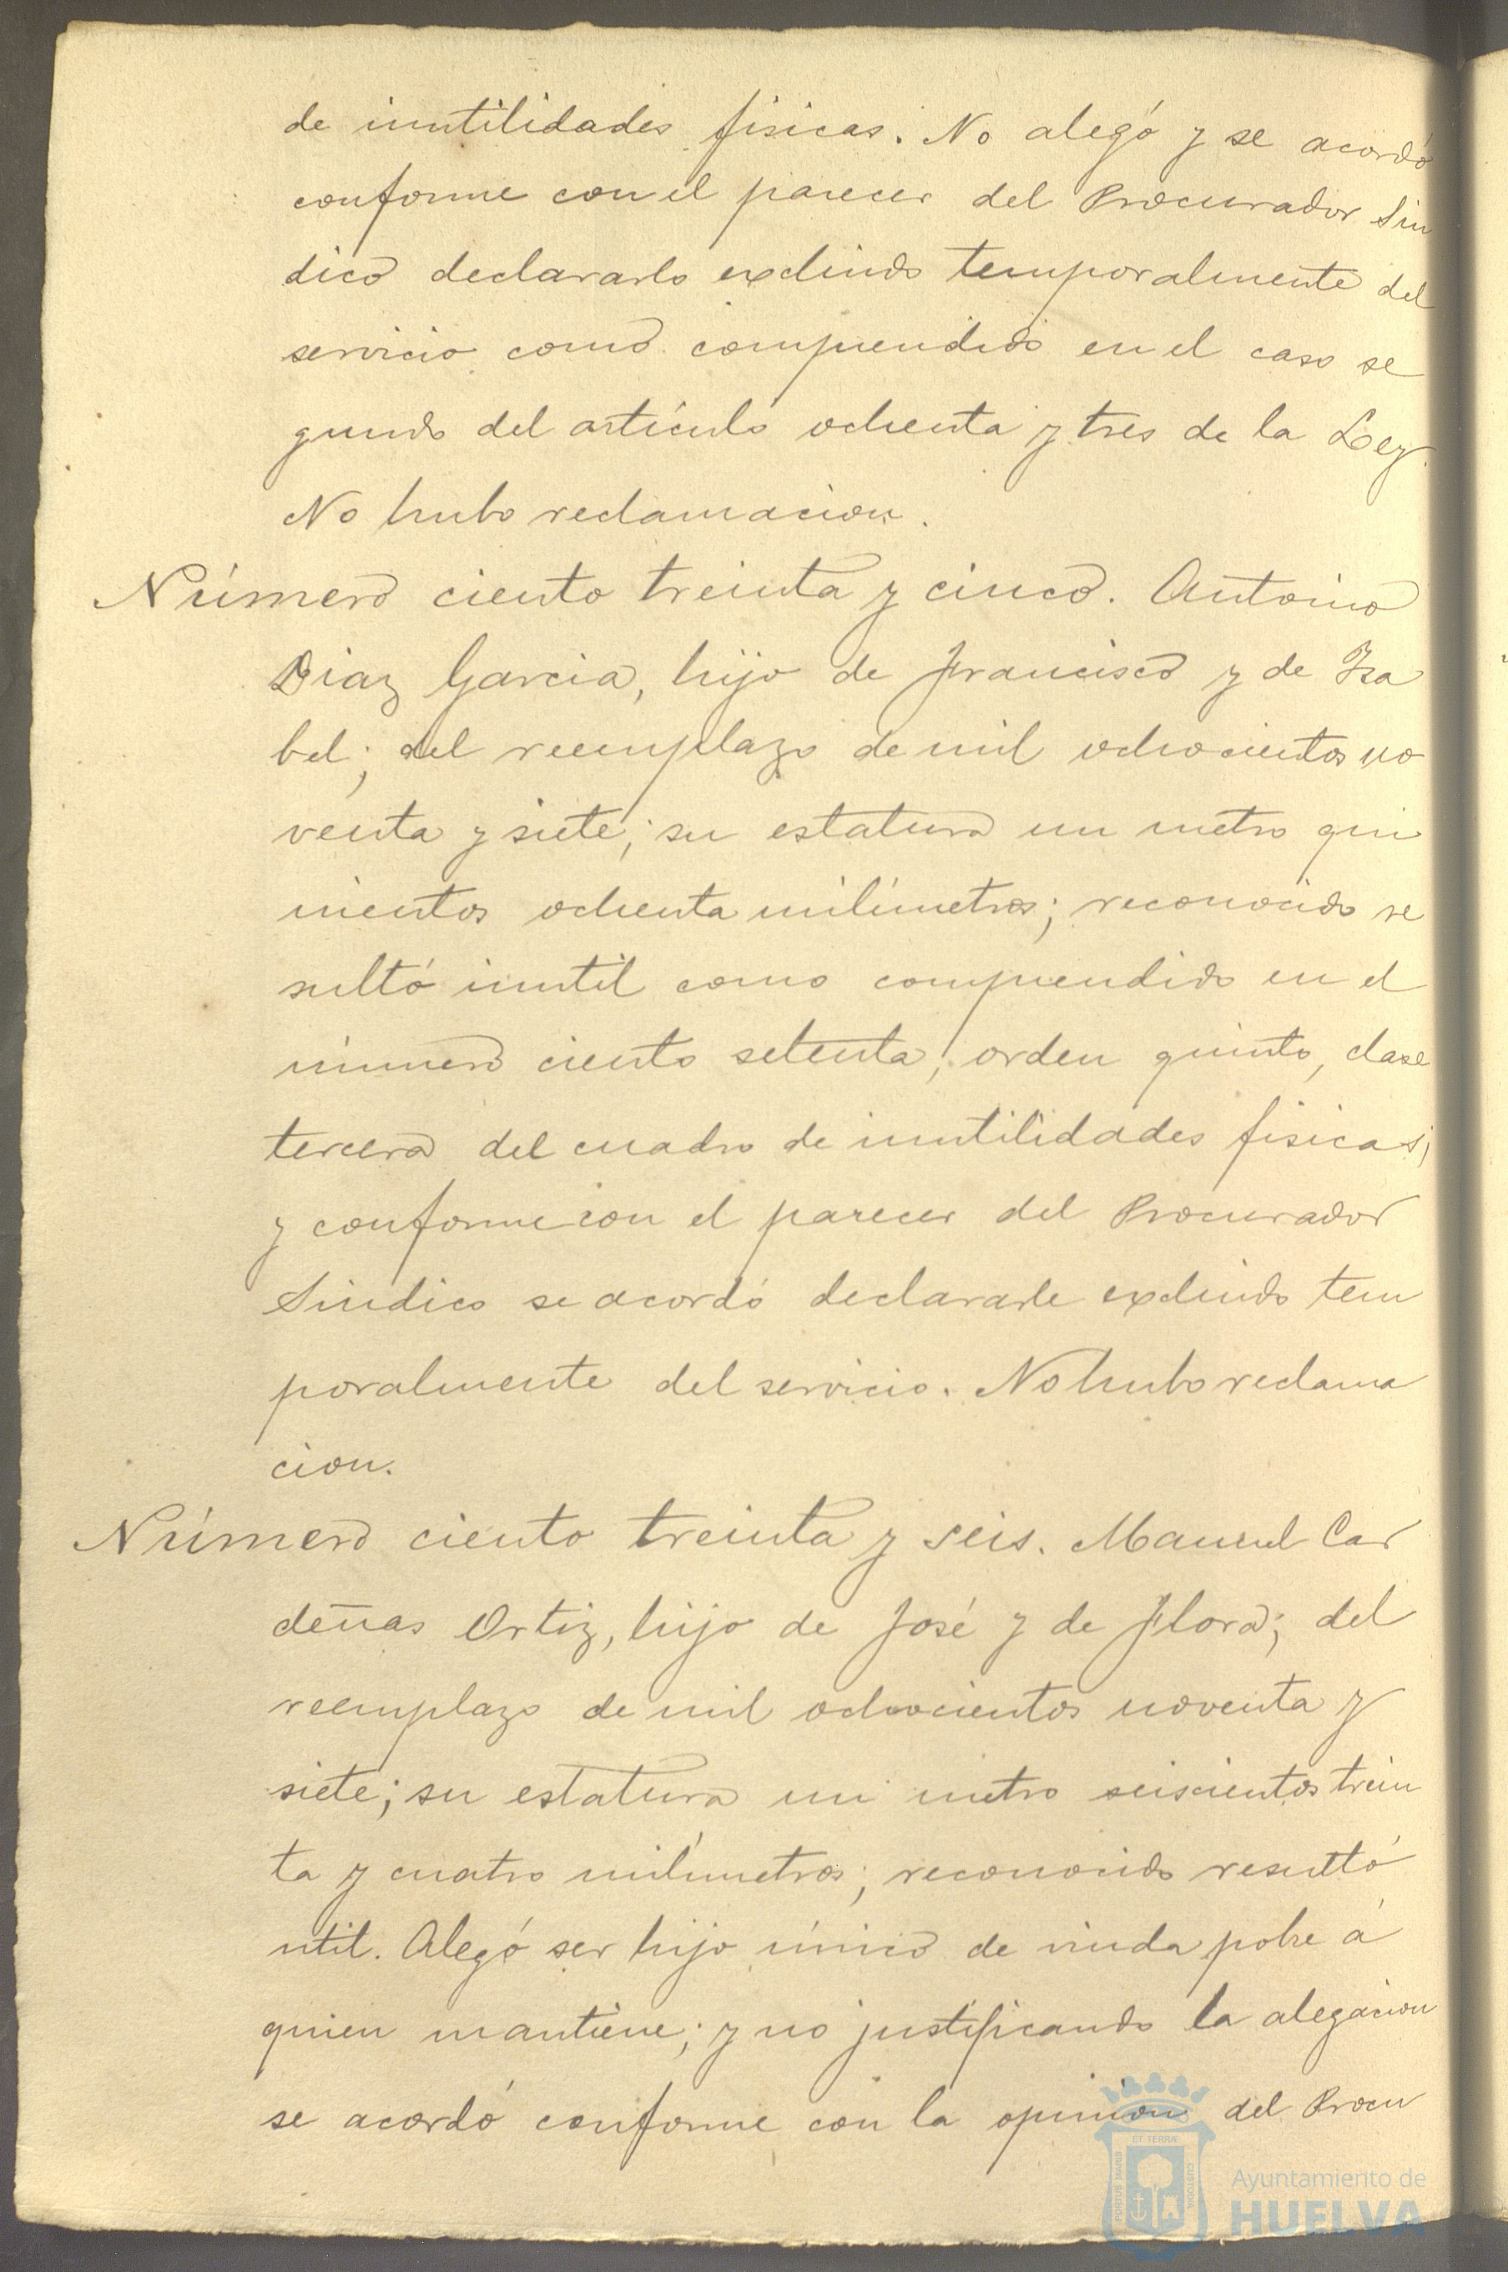 de inutilidades fisicas. No alegó y se acordó
conforme con el parecer del Procurador Sin
dico declararlo excluido temporalmente del
servicio como comprendido en el caso se
gundo del artículo ochenta y tres de la Ley.
No hubo reclamacion.
Número ciento treinta y cinco. Antonio
Diaz Garcia, hijo de Francisco y de Isa
bel; del reemplazo de mil ochocientos no
venta y siete; su estatura un metro qui
nientos ochenta milímetros; reconocido re
sultó inutil como comprendido en el
número ciento setenta, orden quinto, clase
tercera del cuadro de inutilidades fisicas;
y conforme con el parecer del Procurador
Sindico se acordó declararle excluido tem
poralmente del servicio. No hubo reclama
cion.
Número ciento treinta y seis. Manuel Car
deñas Ortiz, hijo de José y de Flora; del
reemplazo de mil ochocientos noventa y
siete; su estatura un metro seiscientos trein
ta y cuatro milímetros; reconocido resultó
util. Alegó ser hijo único de viuda pobre á
quien mantiene; y no justificando la alegacion
se acordó conforme con la opinion del Procu
PORTUS MARIS ET TERRÆ CUSTODIA
Ayuntamiento de
HUELVA